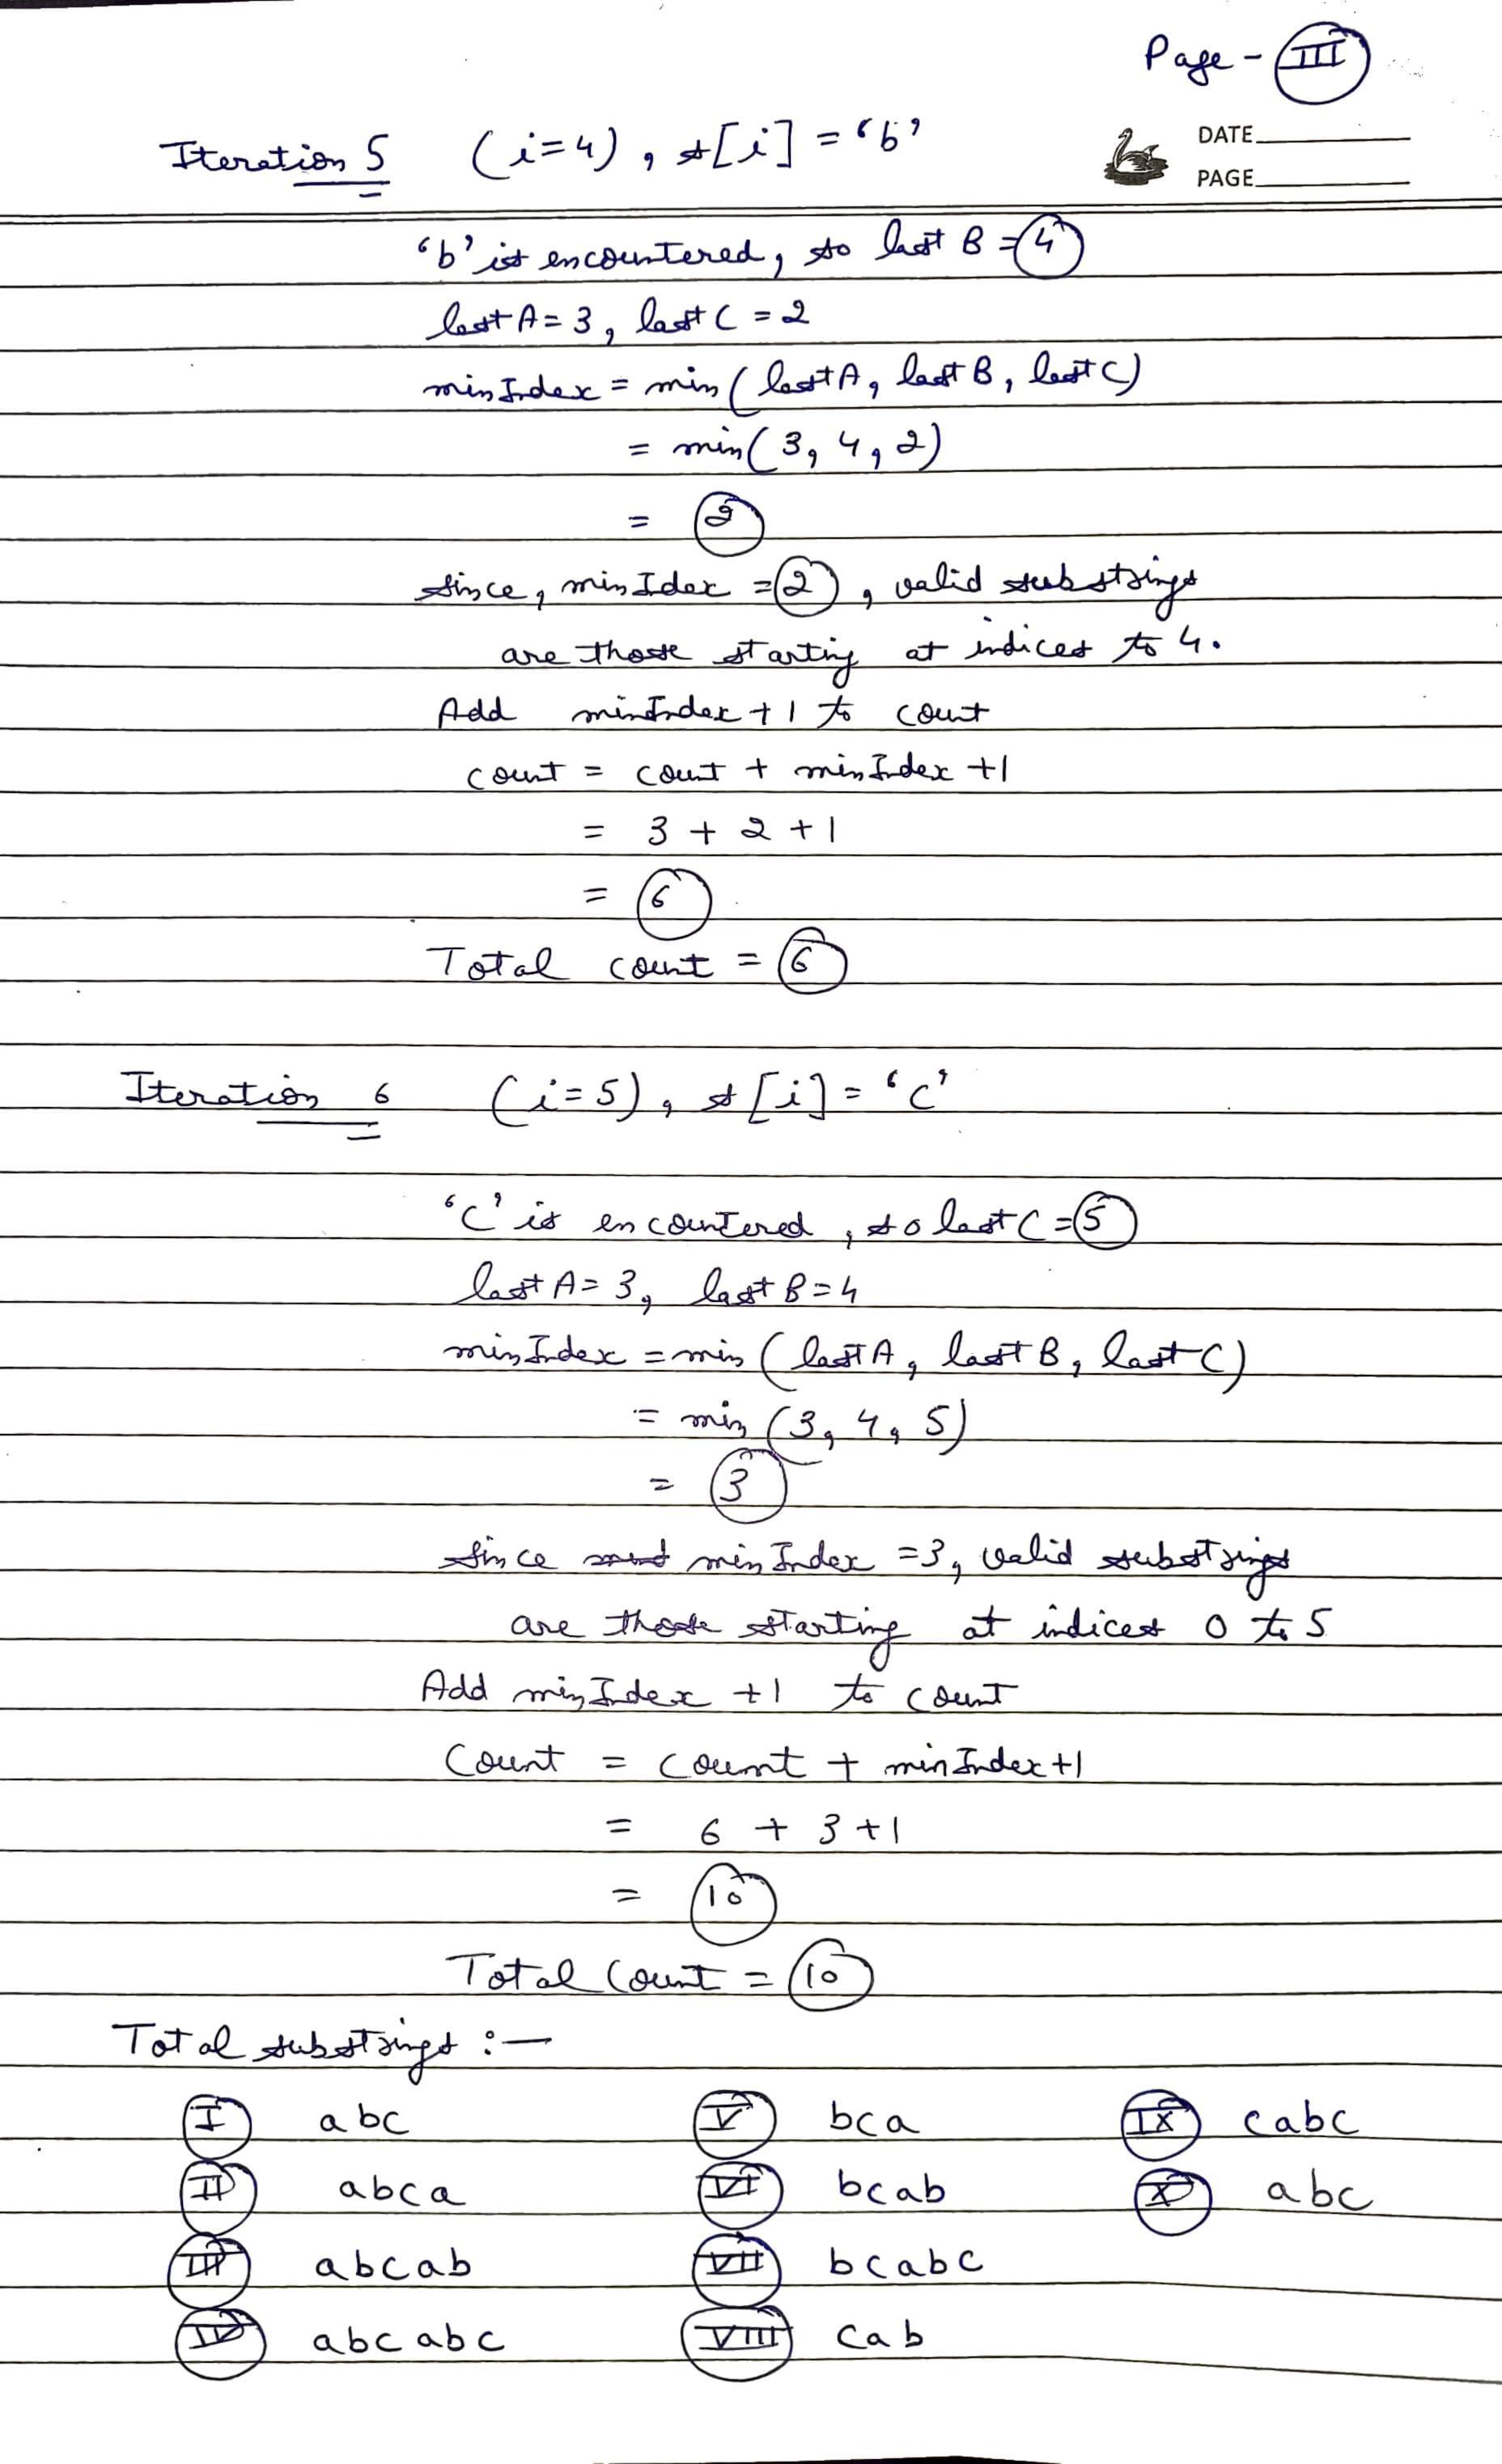 Page - III
Iteration 5 (i=4), s[i] = 'b'
DATE
PAGE
'b' is encountered, so last B = 4
last A = 3, last C = 2
minIndex = min (last A, last B, last C)
= min (3, 4, 2)
= 2
since, minIdex = 2, valid substrings
are those starting at indices to 4.
Add minIndex + 1 to count
count = count + minIndex + 1
= 3 + 2 + 1
= 6
Total count = 6
Iteration 6 (i=5), s[i] = 'c'
'C' is encountered, so last C = 5
last A = 3, last B = 4
minIndex = min (last A, last B, last C)
= min (3, 4, 5)
= 3
since minIndex = 3, valid substrings
are those starting at indices 0 to 5
Add minIndex + 1 to count
Count = count + minIndex + 1
= 6 + 3 + 1
= 10
Total Count = 10
Total substrings :-
I abc V bca IX cabc
II abca VI bcab X abc
III abcab VII bcabc
IV abcabc VIII cab